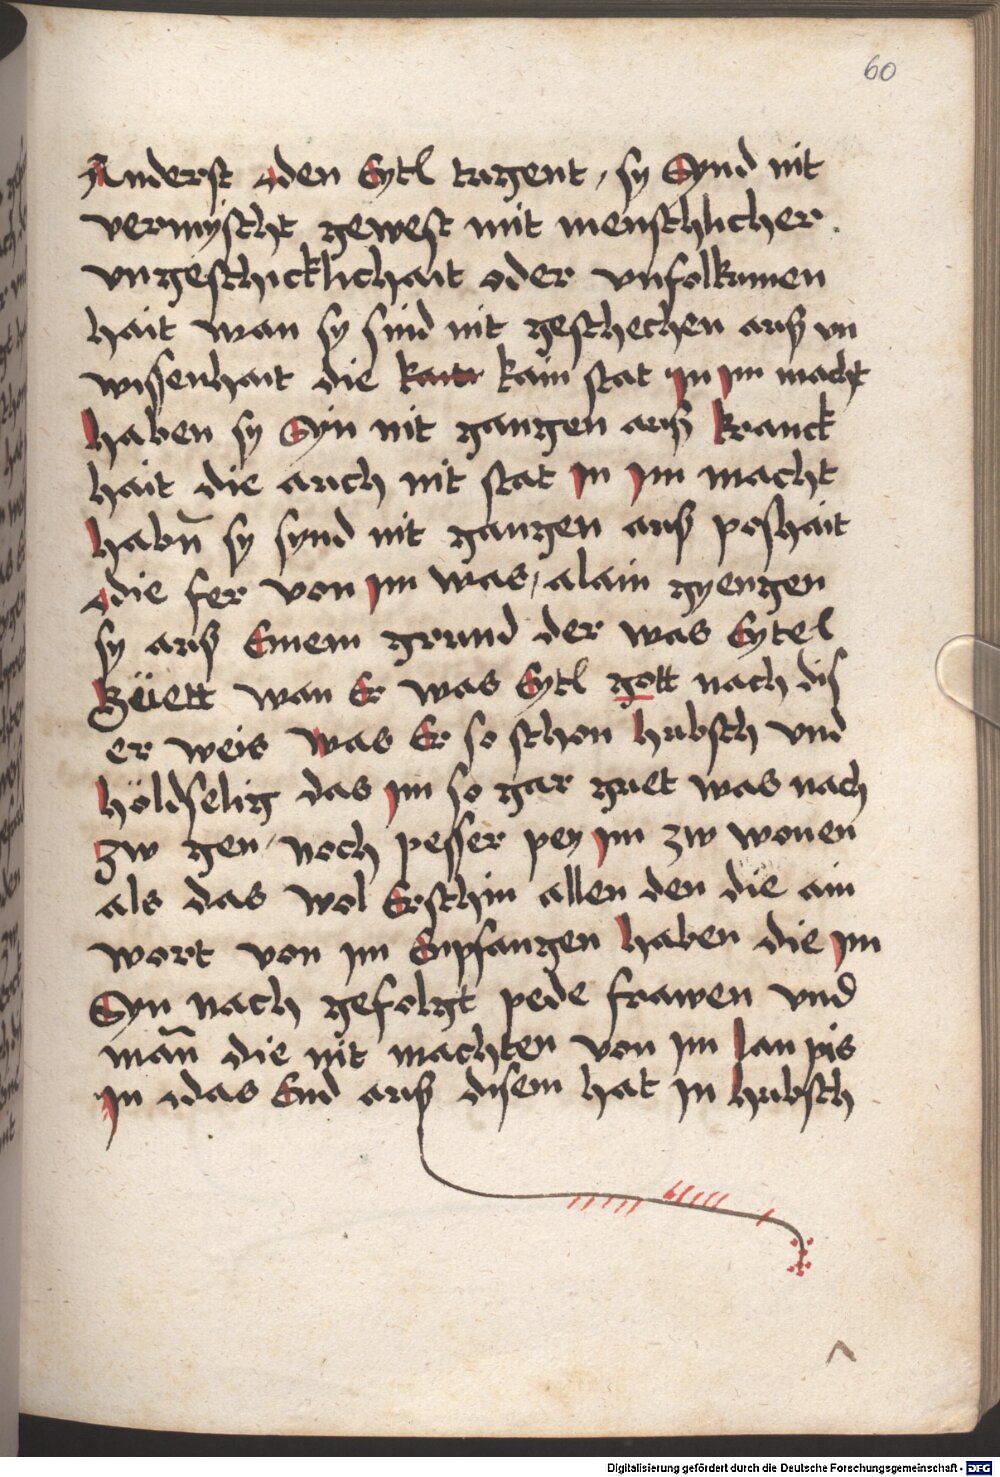 60
Anderst den Eytl tugent, sy Synd nit
vermyscht gewest mit menschlicher
vngeschicklichait oder vnfolkumen
hait wan sy sind nit geschechen aus vn
wissenhait die kain stat in im macht
haben sy Syn nit gangen aus kranck
hait die auch nit stat in im macht
habn̄ sy synd nit gangen aus poshait
die fer von im was, alain gyengen
sy aus Einem grund der was Eytel
güett wan Er was Eytl gott nach dis
er weis was Er so schon hubsch vnd
höldselig das im so gar guet was nach
zw gen, noch pesser pey im zw wonen
als das wol Erschin allen den die ain
wort von im Enpfangen haben die im
Syn nach gefolgt pede frawen vnd
man̄ die nit machten von im lan pis
in das End aus disem hat in hubsch
Digitalisierung gefördert durch die Deutsche Forschungsgemeinschaft - DFG